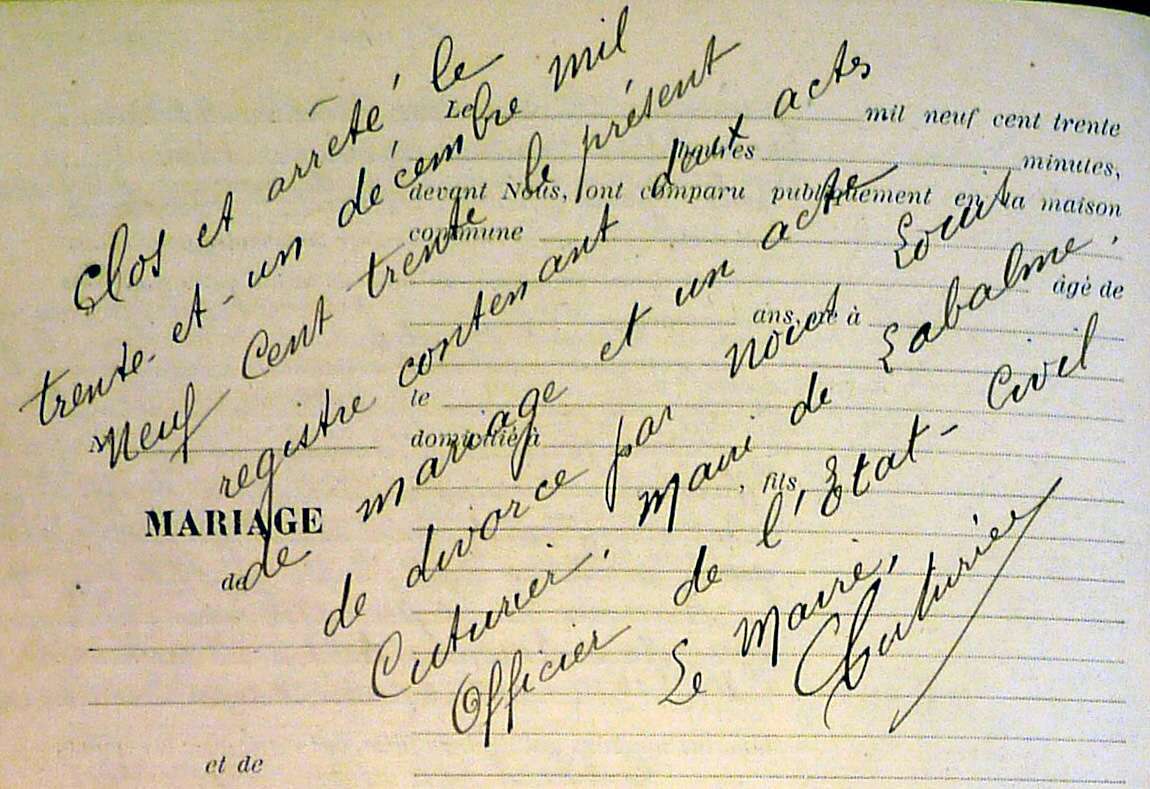 Clos et arrêté le
trente-et-un décembre mil
neuf cent trente le présent
registre contenant deux actes
de mariage et un acte
de divorce par nous Louis
Cuturier. Maire de Labalme.
Officier de l'Etat-Civil
Le Maire,
Cuturier
Le mil neuf cent trente
heures minutes,
devant Nous, ont comparu publiquement en la maison
commune
âgé de
ans, né à
le
domicilié à
, fils
N
MARIAGE
de
et de